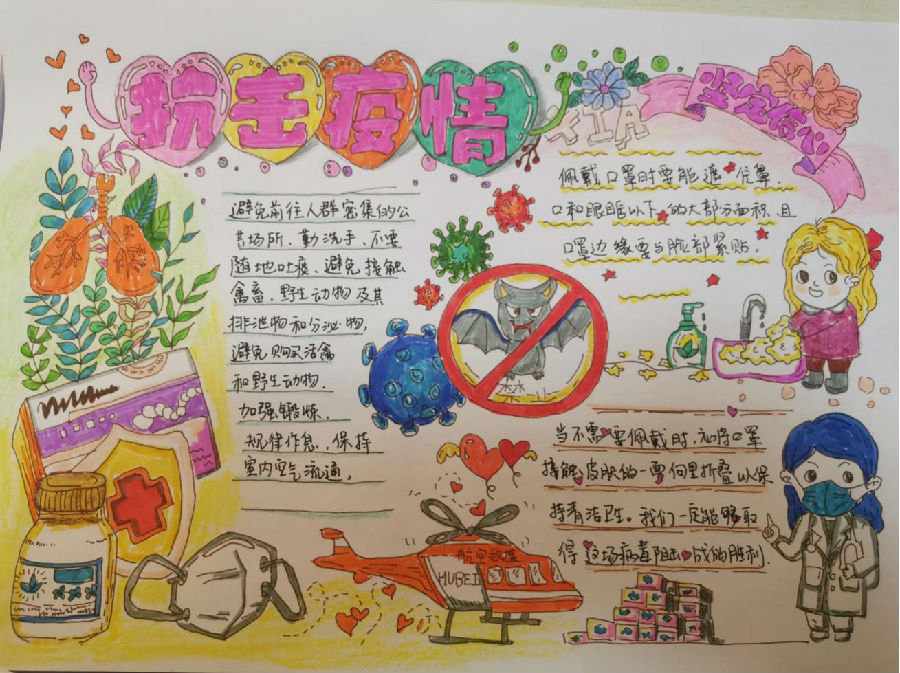 抗击疫情
XIA
坚定信心
避免前往人群密集的公
共场所、勤洗手、不要
随地吐痰、避免接触
禽畜、野生动物及其
排泄物和分泌物,
避免购买活禽
和野生动物.
加强锻炼.
规律作息,保持
室内空气流通,
佩戴口罩时要能遮住鼻.
口和眼睛以下的大部分面积,且
口罩边缘要与脸部紧贴,
当不需要佩戴时,
接触皮肤的一
持清洁卫生。我们一定能够取
得这场病毒阻
航空救援
HUBEI